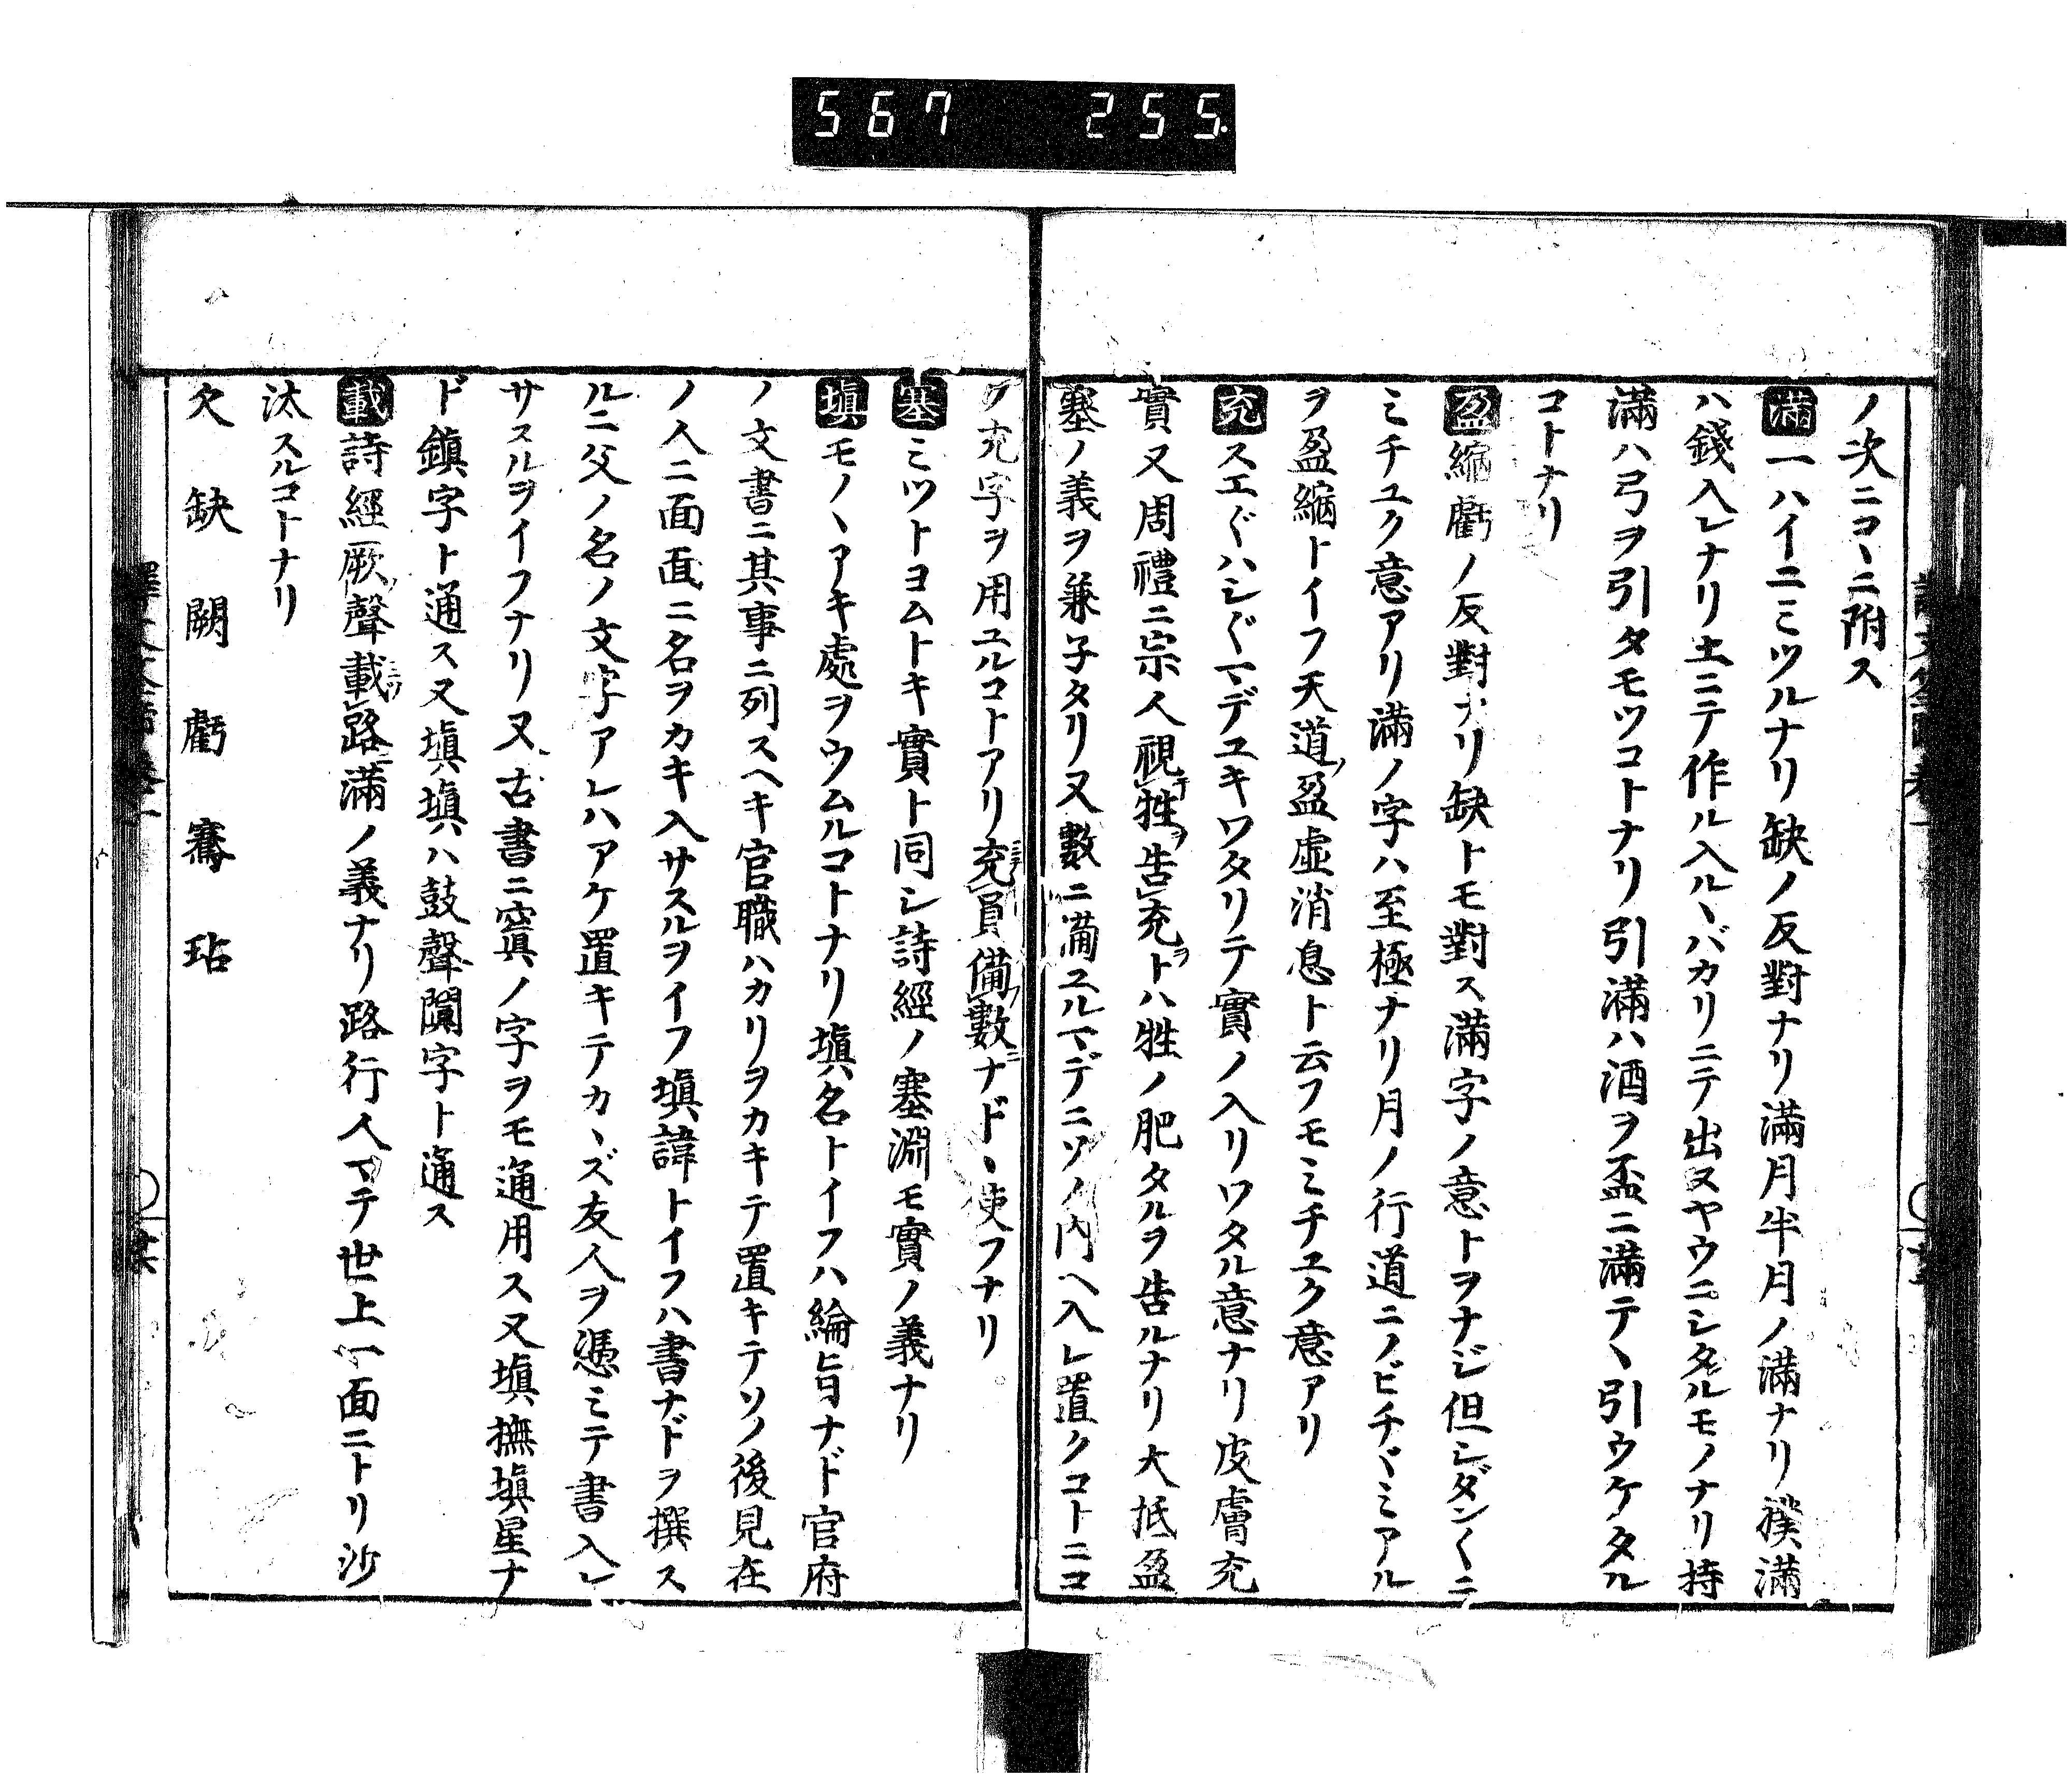 567 255
ノ次ニコヽニ附ス
滿一ハイニミツルナリ缺ノ反對ナリ滿月半月ノ滿ナリ撲滿
ハ錢入レナリ土ニテ作ル入ルヽバカリニテ出ヌヤウニシタルモノナリ持
滿ハ弓ヲ引タモツコトナリ引滿ハ酒ヲ盃ニ滿テヽ引ウケタル
コトナリ
盈縮虧ノ反對ナリ缺トモ對ス滿字ノ意トヲナジ但シダン〱ニ
ミチユク意アリ滿ノ字ハ至極ナリ月ノ行道ニノビチヾミアル
ヲ盈縮トイフ天道ノ盈虚消息ト云フモミチユク意アリ
充スエ〲ハシ〲マデユキワタリテ實ノ入リワタル意ナリ皮膚充
實又周禮ニ宗人視牲告充トハ牲ノ肥タルヲ告ルナリ大抵盈
塞ノ義ヲ兼子タリ又數ニ滿ユルマデニソノ内ヘ入レ置クコトニコ
ノ充字ヲ用ユルコトアリ充員備數ナドヽ使フナリ
塞ミツトヨムトキ實ト同シ詩經ノ塞淵モ實ノ義ナリ
塡モノヽアキ處ヲウムルコトナリ塡名トイフハ綸旨ナド官府
ノ文書ニ其事ニ列スヘキ官職ハカリヲカキテ置キテソノ後見在
ノ人ニ面面ニ名ヲカキ入サスルヲイフ塡諱トイフハ書ナドヲ撰ス
ルニ父ノ名ノ文字アレハアケ置キテカヽズ友人ヲ憑ミテ書入レ
サスルヲイフナリ又古書ニ寘ノ字ヲモ通用ス又塡撫塡星ナ
ド鎭字ト通ス又塡塡ハ鼓聲闐字ト通ス
載詩經厥聲載路滿ノ義ナリ路行人マテ世上一面ニトリ沙
汰スルコトナリ
欠 缺 闕 虧 騫 玷